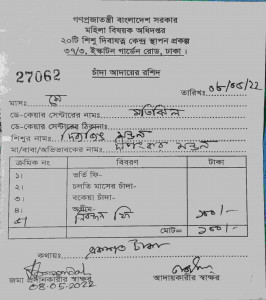 গণপ্রজাতন্ত্রী বাংলাদেশ সরকার
মহিলা বিষয়ক অধিদপ্তর
২০টি শিশু দিবাযত্ন কেন্দ্র স্থাপন প্রকল্প
৩৭/৩, ইস্কাটন গার্ডেন রোড, ঢাকা।
27062
চাঁদা আদায়ের রশিদ
তারিখঃ ০৮/০৫/২২
মাসঃ মে
ডে-কেয়ার সেন্টারের নামঃ মতিঝিল
ডে-কেয়ার সেন্টারের ঠিকানাঃ
শিশুর নামঃ
মা/বাবা/অভিভাবকের নামঃ
ক্রমিক নং বিবরণ টাকা
১। ভর্তি ফি-
২। চলতি মাসের চাঁদা-
৩। বকেয়া চাঁদা-
৪। অগ্রীম-
৫। নিবন্ধন ফি ১০০/-
মোট= ১০০/-
কথায়ঃ একশত টাকা
জমা প্রদানকারীর স্বাক্ষর আদায়কারীর স্বাক্ষর
08.05.2022